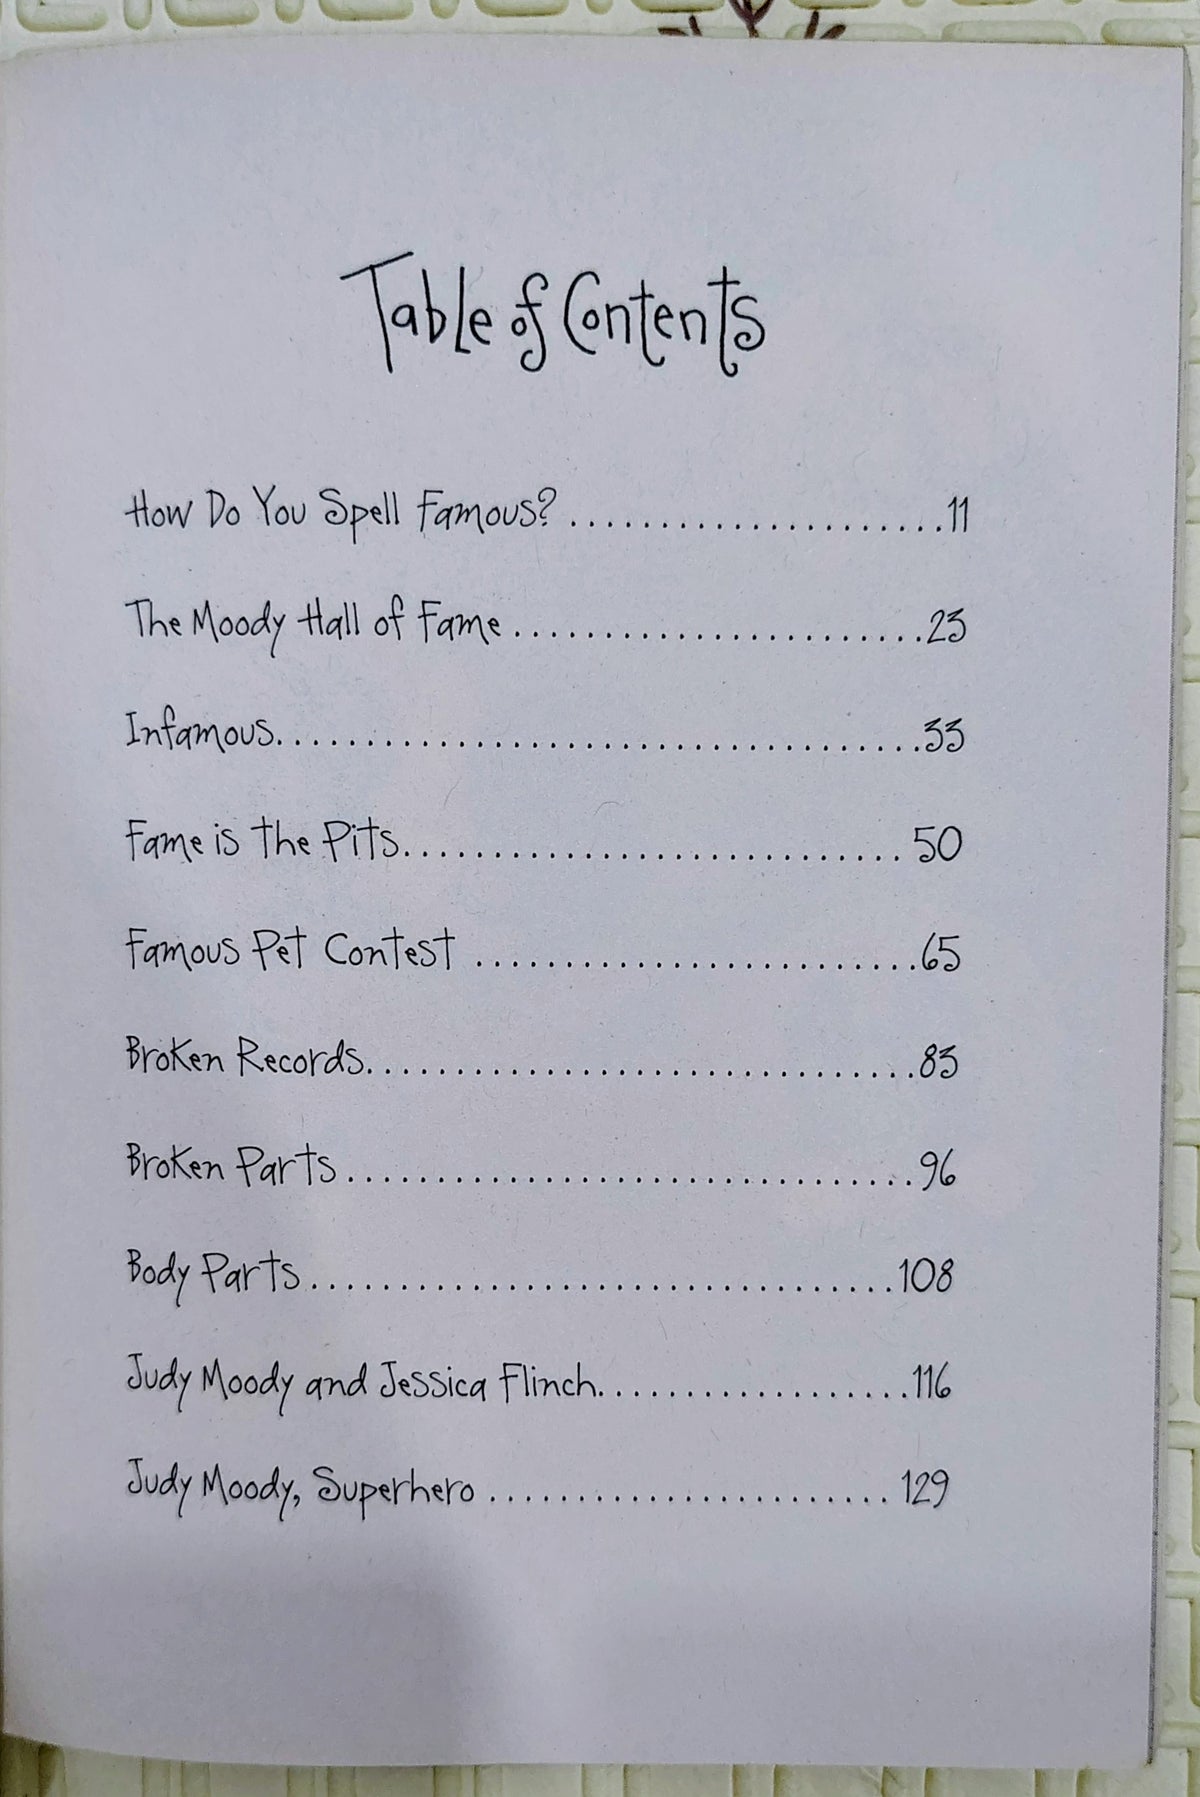 Table of Contents
How Do You Spell Famous? ......................11
The Moody Hall of Fame ........................23
Infamous......................................33
Fame is the Pits............................. 50
Famous Pet Contest ..........................65
Broken Records................................83
Broken Parts .................................96
Body Parts ..................................108
Judy Moody and Jessica Flinch..................116
Judy Moody, Superhero ....................... 129